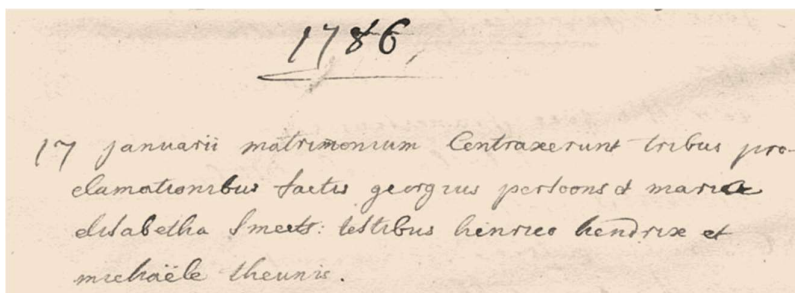 1786
17 januarii matrimonium Contraxerunt tribus pro-
clamationibus factis georgius persoons et maria
elisabetha Smeets: testibus henrico hendrix et
michaële theunis.